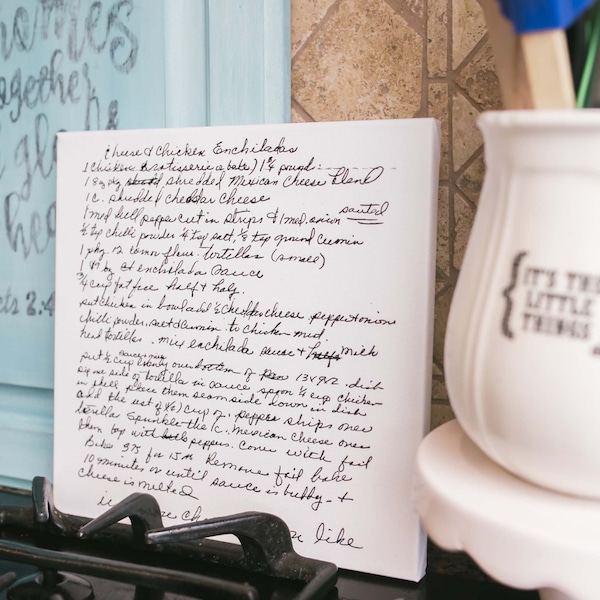 Cheese & Chicken Enchiladas
1 Chicken (rotisserie or bake) 1 ¾ pound
1 8oz pkg shredded Mexican Cheese Blend
1 C. shredded cheddar cheese
1 med bell pepper cut in strips & 1 med. onion sauted
½ tsp chilli powder ¼ tsp salt, ⅛ tsp ground Cumin
1 pkg. 12 corn flour tortillas (small)
enchilada sauce
¾ cup fat free half & half.
put chicken in bowl add ½ cheddar cheese. pepper & onion
chilli powder, salt & cumin to chicken mix.
heat tortillas. mix enchilada sauce & milk
put ½ cup sauce mix evenly over bottom of 13x9x2. dish
dip one side of tortilla in sauce spoon ¼ cup chicken
in shell place them seam side down in dish
add the rest of cup of. pepper strips over
tortilla Sprinkle the 1c. Mexican cheese over
them top with peppers. Cover with foil
Bake 375 for 15 m Remove foil bake
10 minutes or until sauce is bubbly &
cheese is melted
like
homes
together
Acts 2:4
IT'S THE
LITTLE
THINGS